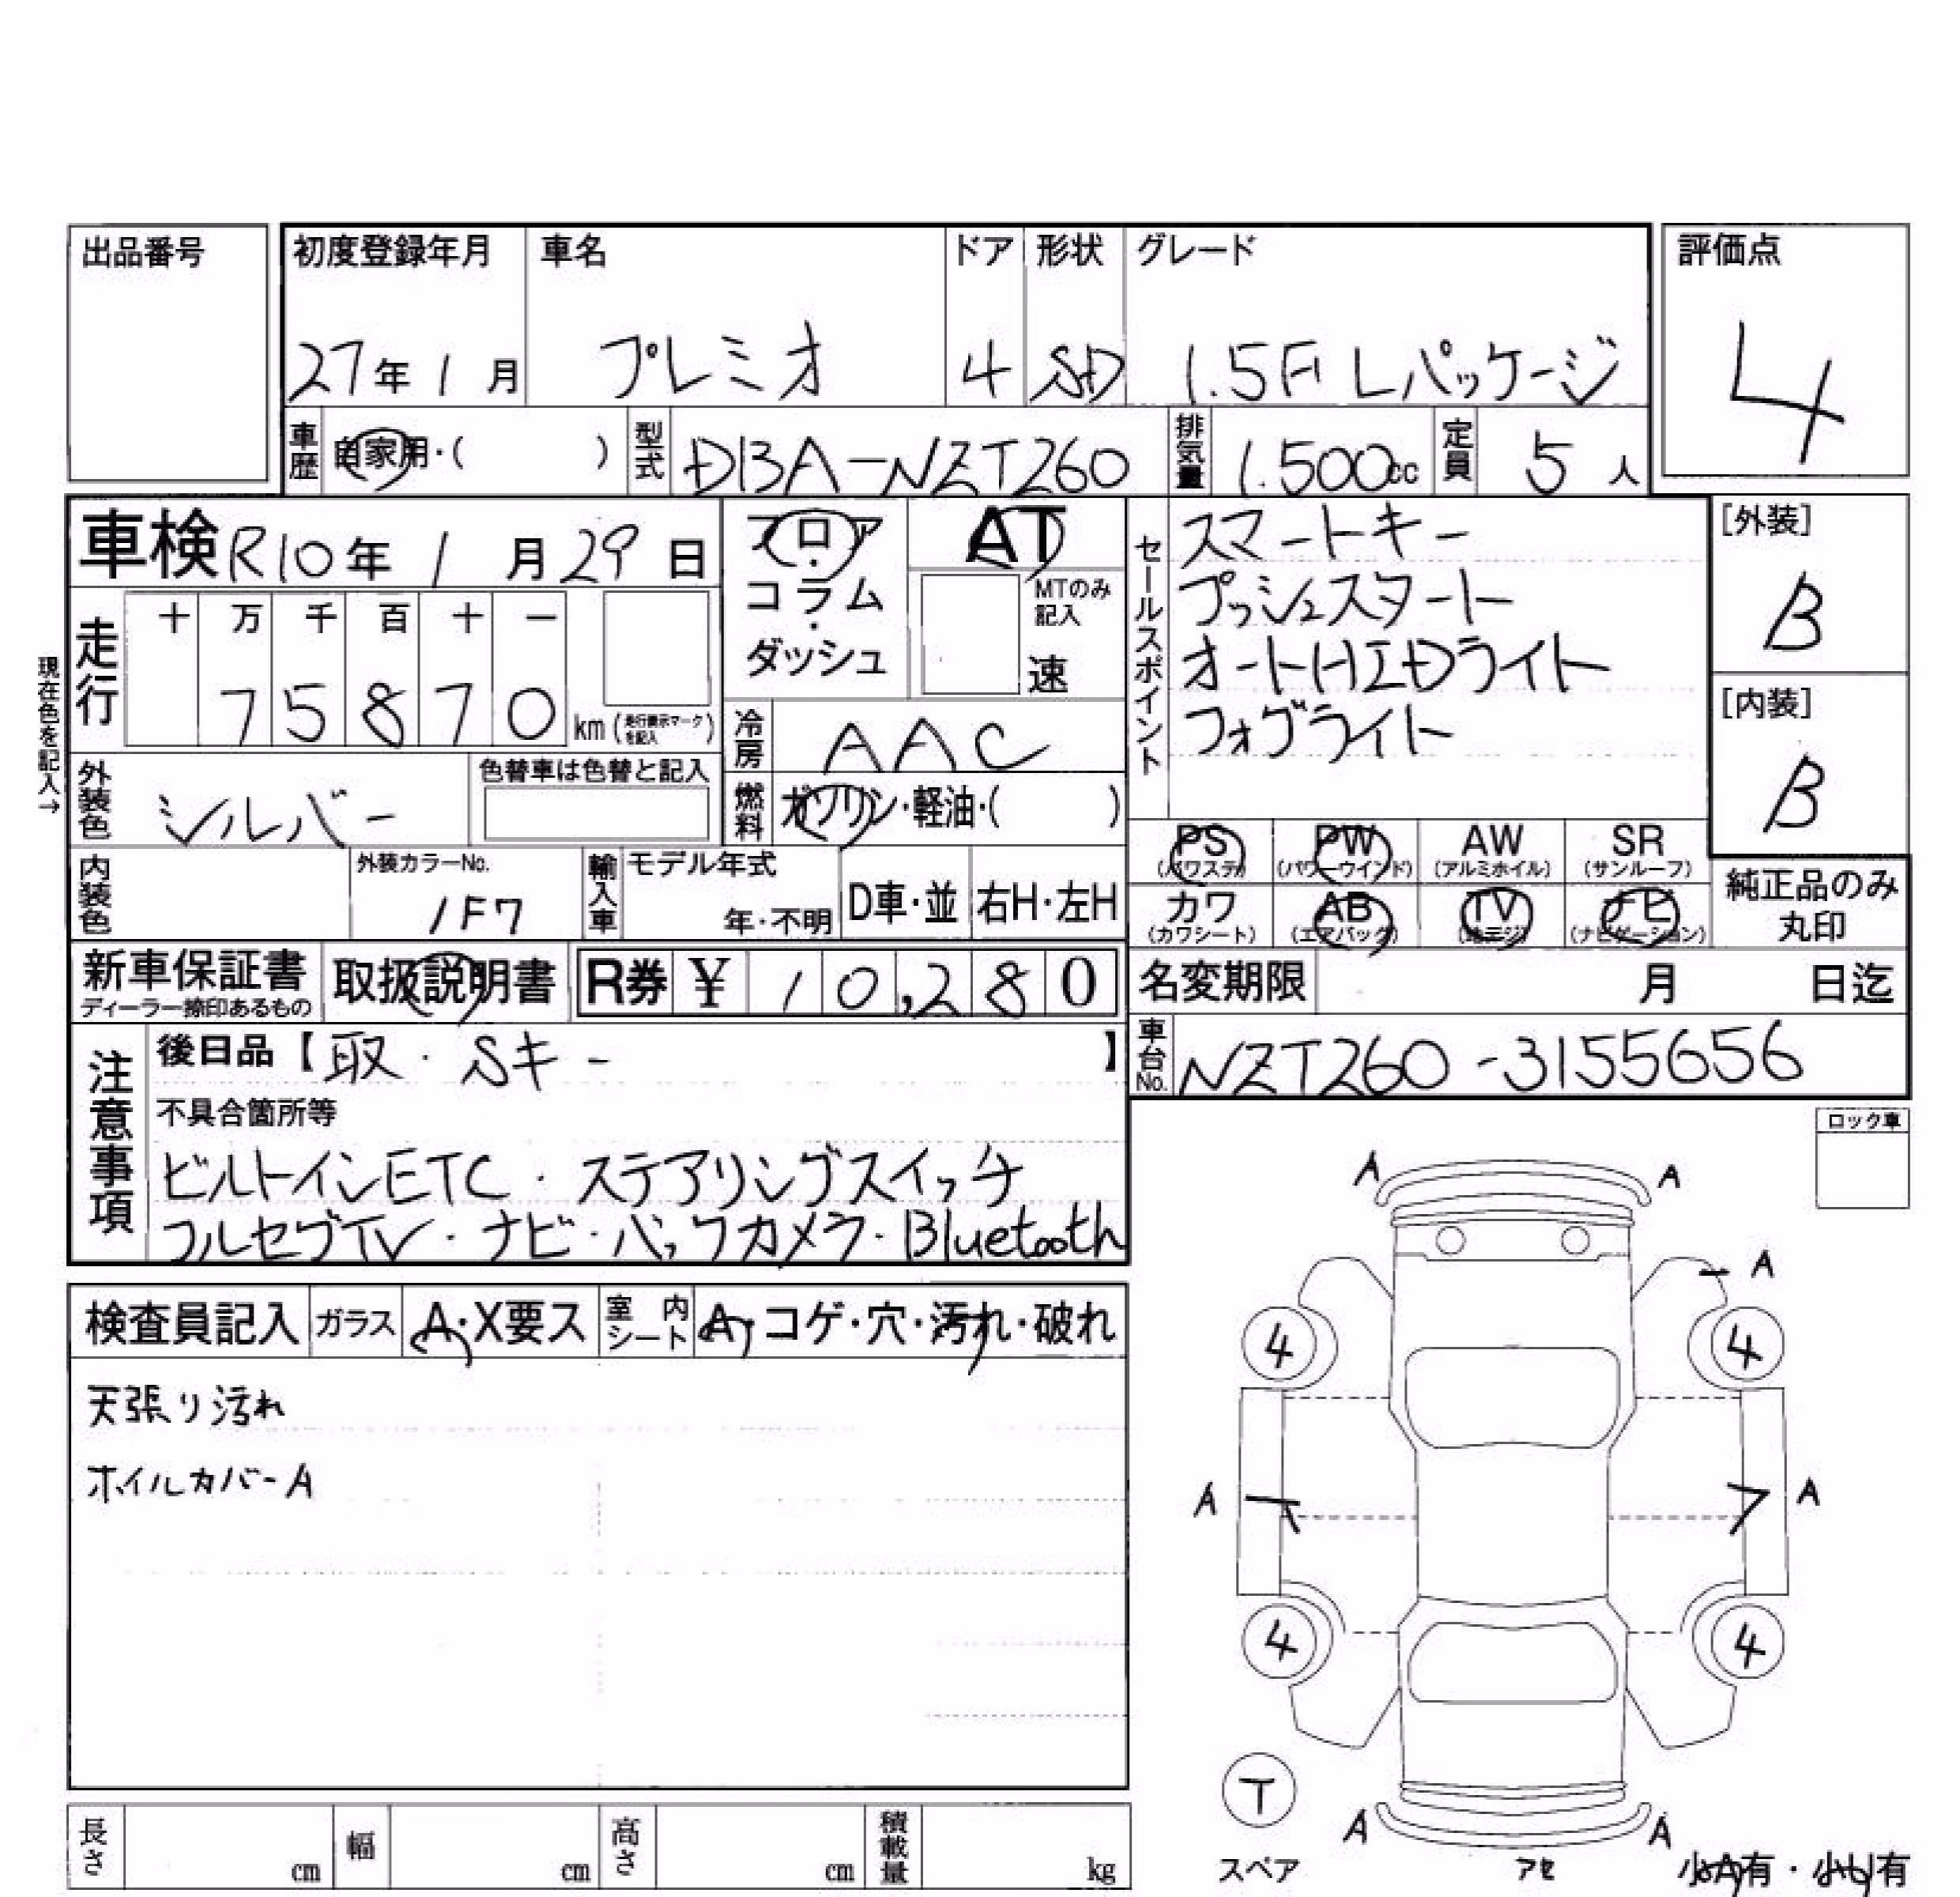 出品番号
初度登録年月 車名 ドア 形状 グレード 評価点
27年1月 プレミオ 4 SD 1.5F Lパッケージ 4
車歴 自家用・( ) 型式 DBA-NZT260 排気量 1.500cc 定員 5人
車検 R10年1月29日 フロア・コラム・ダッシュ AT
MTのみ記入 速
現在色を記入→
走行 十万千百十一
75870 km (走行表示マークを記入)
冷房 AAC
外装色 シルバー 色替車は色替と記入
燃料 ガソリン・軽油・( )
内装色 外装カラーNo. 1F7 輸入車 モデル年式 年・不明 D車・並 右H・左H
セールスポイント
スマートキー
プッシュスタート
オートHIDライト
フォグライト
[外装]
B
[内装]
B
PS (パワステ) PW (パワーウインド) AW (アルミホイル) SR (サンルーフ)
カワ (カワシート) AB (エアバック) TV (地デジ) ナビ (ナビゲーション)
純正品のみ丸印
新車保証書 ディーラー捺印あるもの 取扱説明書 R券 ¥ 10,280
名変期限 月 日迄
車台No. NZT260-3155656
注意事項
後日品【取・Sキー 】
不具合箇所等
ビルトインETC・ステアリングスイッチ
フルセグTV・ナビ・バックカメラ・Bluetooth
ロック車
検査員記入 ガラス A・X要ス 室内シート A・コゲ・穴・汚れ・破れ
天張り汚れ
ホイルカバーA
A A
A
4 4
A A
4 4
T
A A
スペア アセ 小A有・小U有
長さ cm 幅 cm 高さ cm 積載量 kg